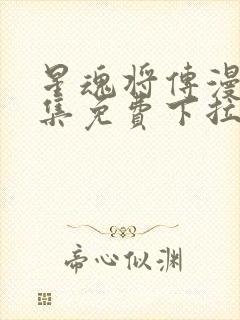 星魂将傳漫
集免費下拉
帝心似渊